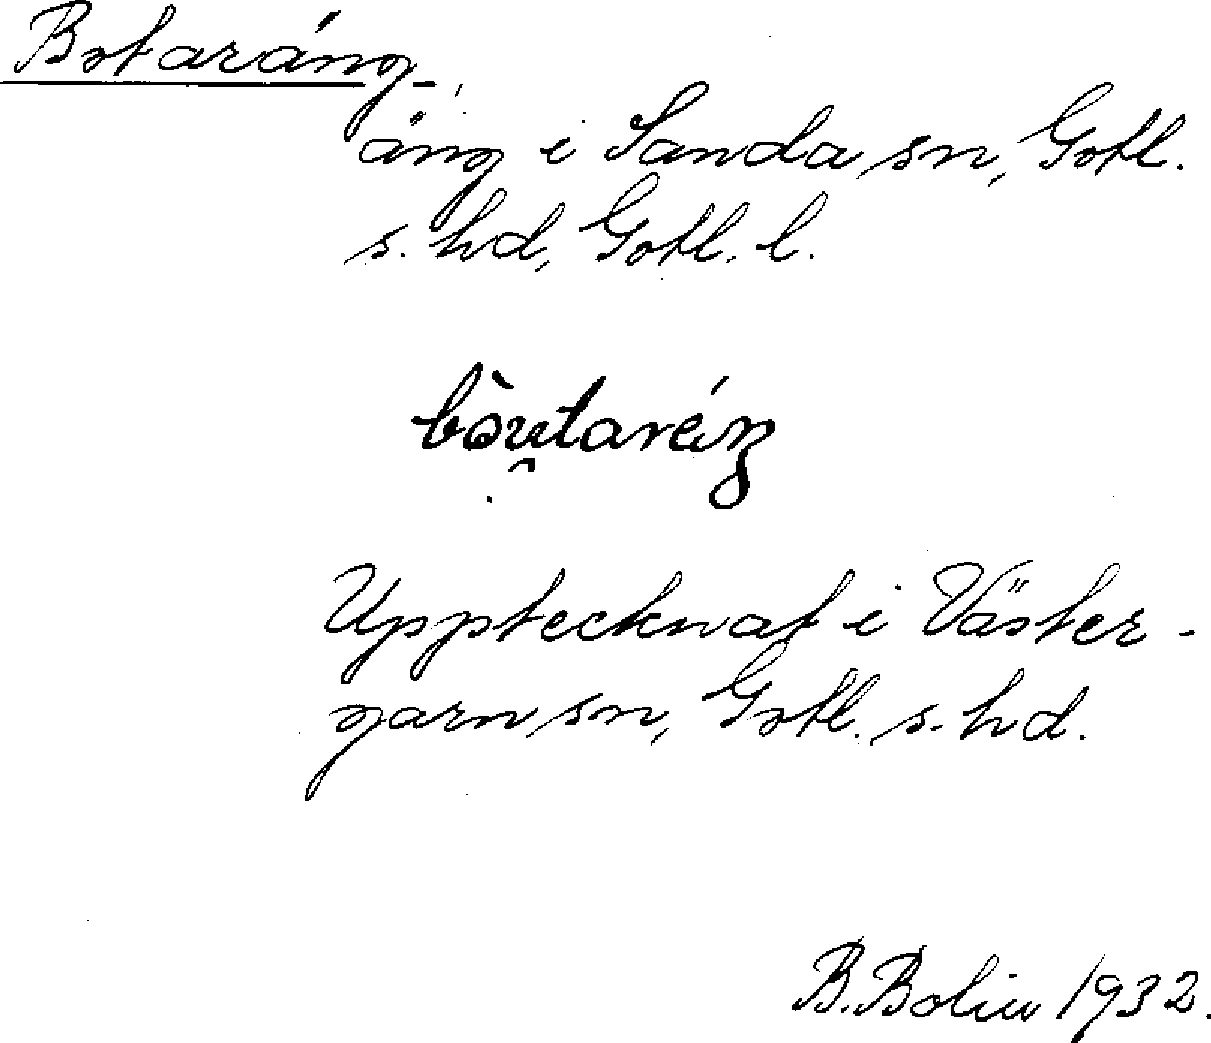 Botaräng
äng i Sanda sn, Gotl.
s. hd, Gotl. l.
Upptecknat i Väster-
garn sn, Gotl. s. hd.
B. Bolin 1932.